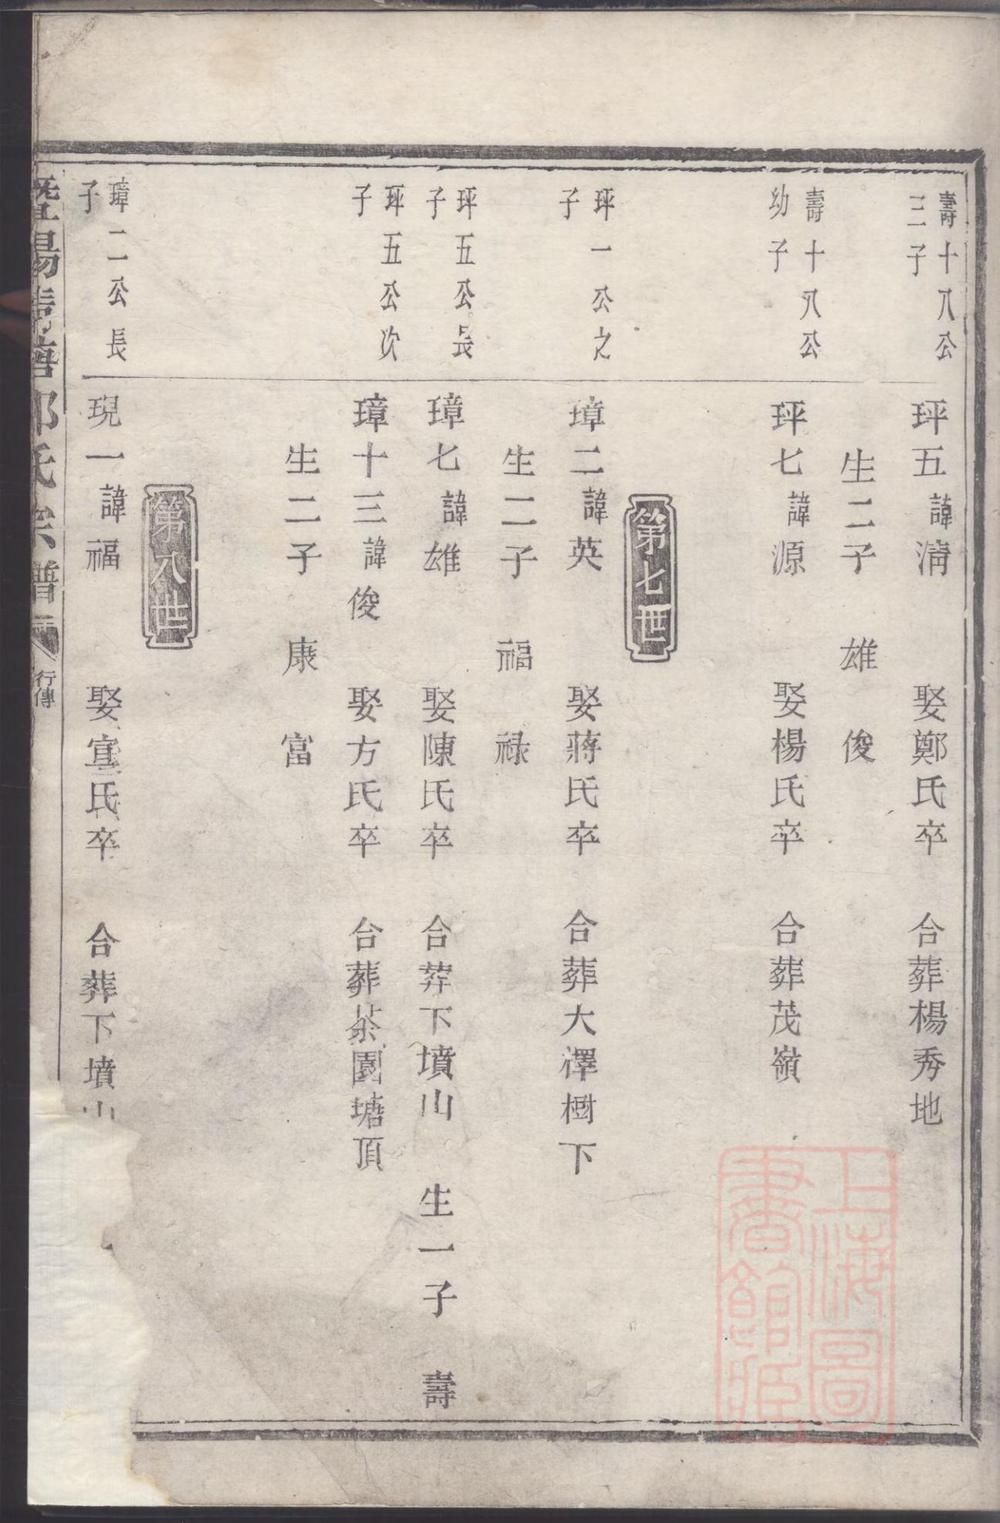 壽十八公
三子
玶五諱淸 娶鄭氏卒 合葬楊秀地
生二子 雄 俊
壽十八公
幼子
玶七諱源 娶楊氏卒 合葬茂嶺
第七世
玶一公之
子
璋二諱英 娶蔣氏卒 合葬大澤樹下
生二子 福 祿
玶五公長
子
璋七諱雄 娶陳氏卒 合葬下墳山 生一子 壽
玶五公次
子
璋十三諱俊 娶方氏卒 合葬茶園塘頂
生二子 康 富
第八世
璋二公長
子
現一諱福 娶宣氏卒 合葬下墳山
暨陽 氏宗譜 行傳
上海圖書館藏